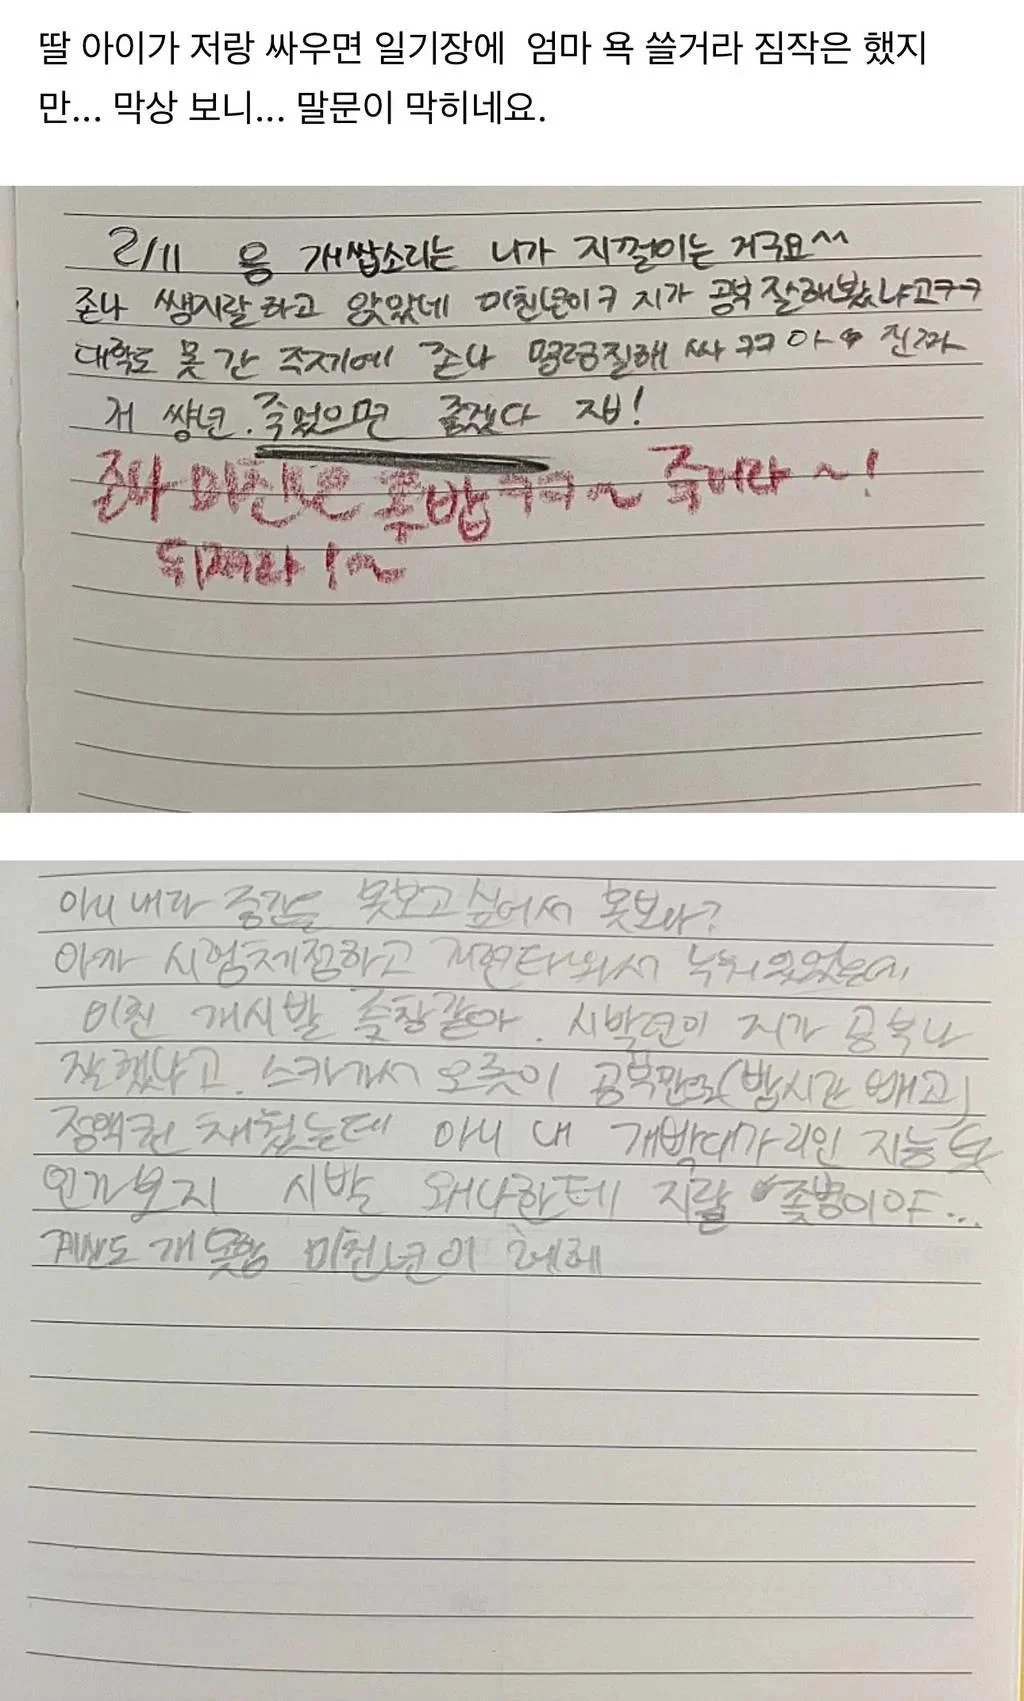 딸 아이가 저랑 싸우면 일기장에 엄마 욕 쓸거라 짐작은 했지
만... 막상 보니... 말문이 막히네요.
2/11 응 개쌉소리는 니가 지껄이는 거구요^^
존나 쌩지랄하고 앉았네 미친년이ㅋ 지가 공부 잘해봤냐고ㅋㅋ
대학도 못 간 주제에 존나 명령질해 싸ㅋㅋ 아 진짜
저 썅년. 죽었으면 좋겠다 제발!
존나 미친년 좆밥ㅋㅋ~ 죽어라~!
뒤져라!~
아니 내가 중간을 못보고싶어서 못보나?
아까 시험채점하고 현타와서 누워있었는데
미친 개시발 좆창같아. 시발년이 지가 공부나
잘했냐고. 스카가서 오롯이 공부만으로(밥시간 빼고)
정액권 채웠는데 아니 내 개빡대가리인 지능
인가보지 시발 왜나한테 지랄 좆병이야...
계산도 개못함 미친년이 헤헤